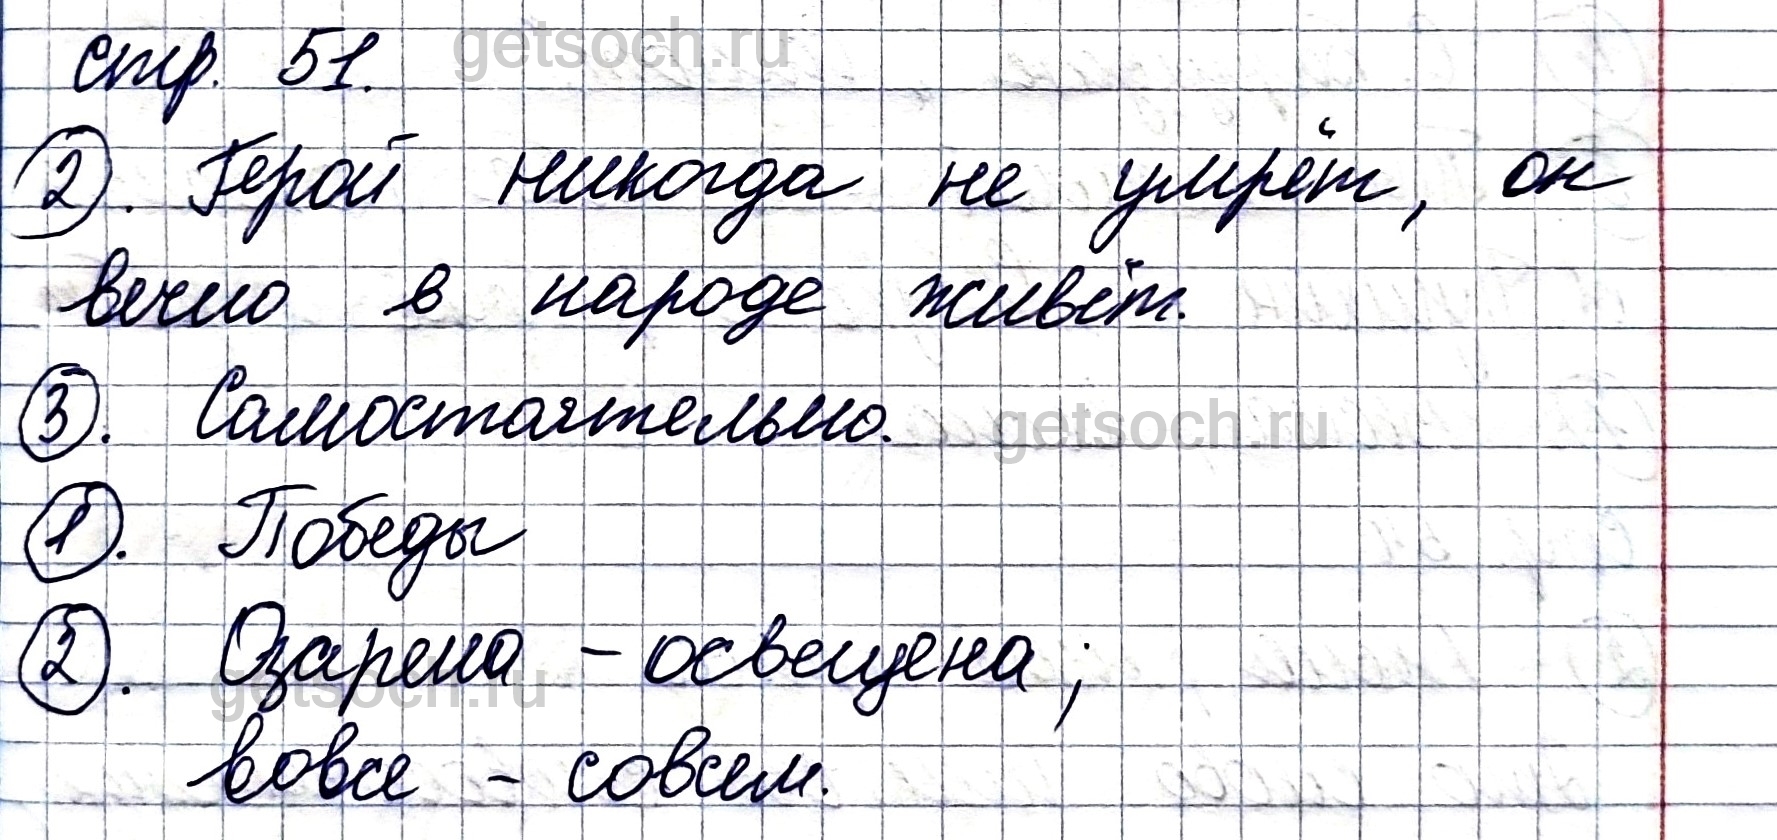 стр. 51.
getsoch.ru
2. Герой никогда не умрёт, он
вечно в народе живёт.
3. Самостоятельно.
getsoch.ru
1. Победы
2. Озарена – освещена;
getsoch.ru
вовсе – совсем.